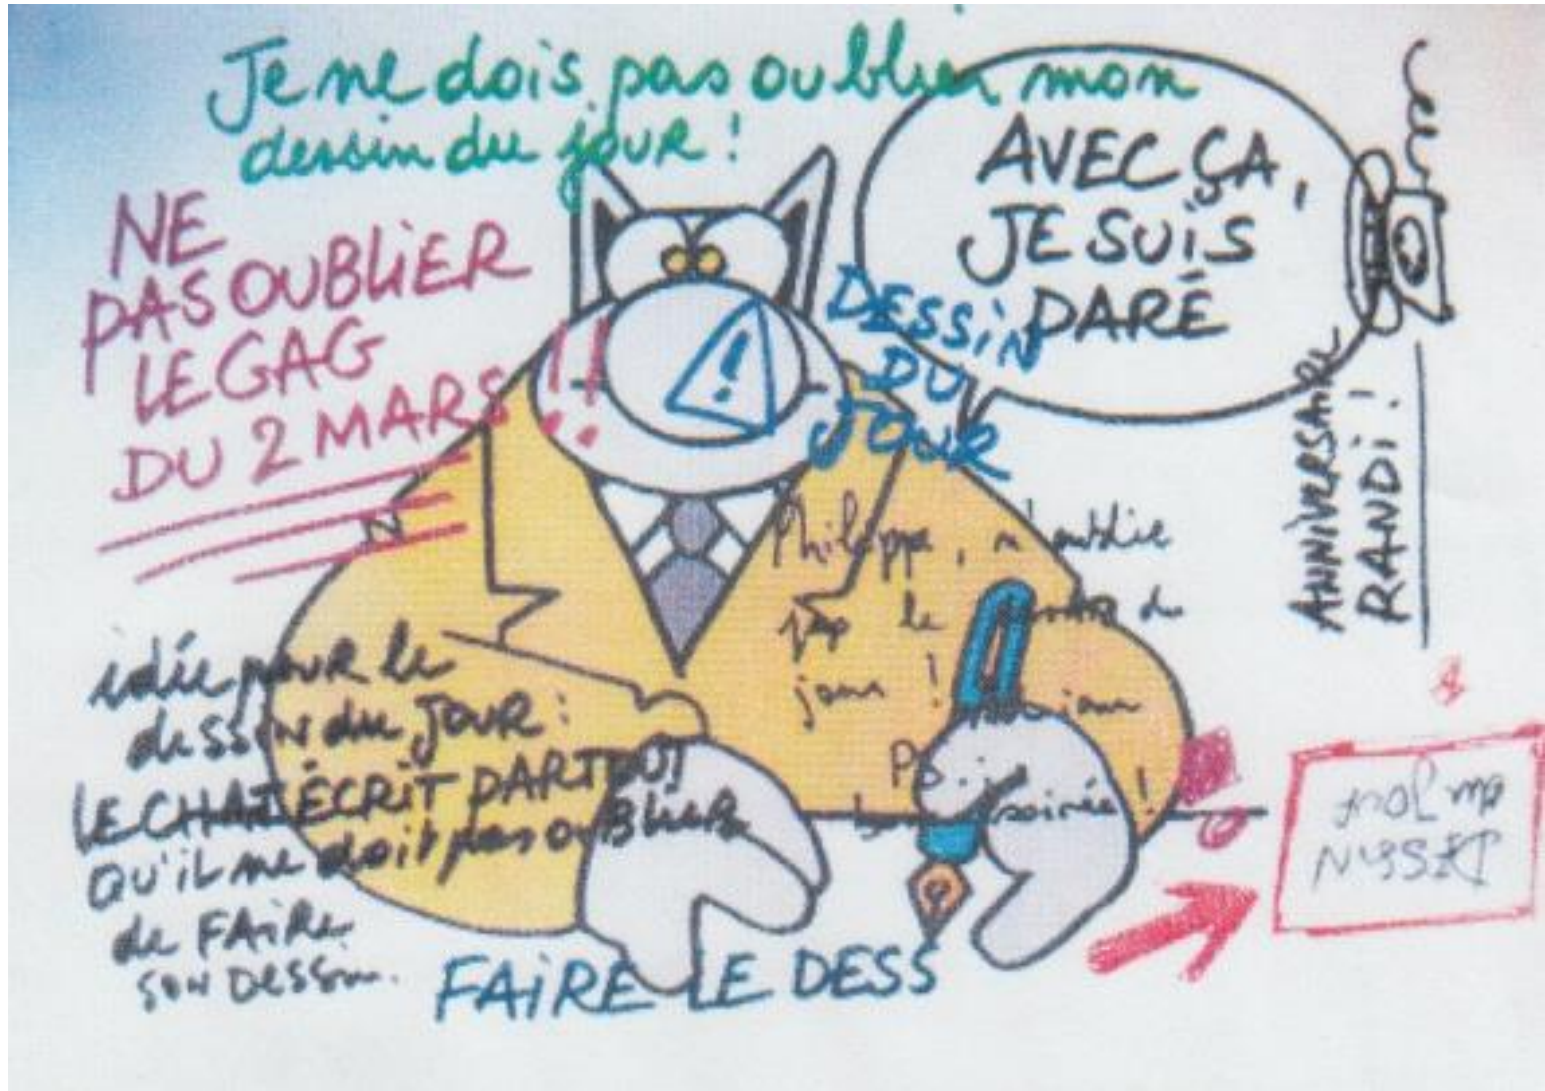 Je ne dois pas oublier mon
dessin du jour !
NE
PAS OUBLIER
LE GAG
DU 2 MARS !!
AVEC ÇA,
JE SUIS
PARÉ
DESSIN
DU
JOUR
!
ANNIVERSAIRE
RANDI !
Philippe, n'oublie
pas le de
jour !
PS : je
bonne soirée !
idée pour le
dessin du jour :
LE CHAT ÉCRIT PARTOUT
QU'IL ne doit pas oublier
de FAIRE
son dessin.
DESSIN
du jour
FAIRE LE DESS